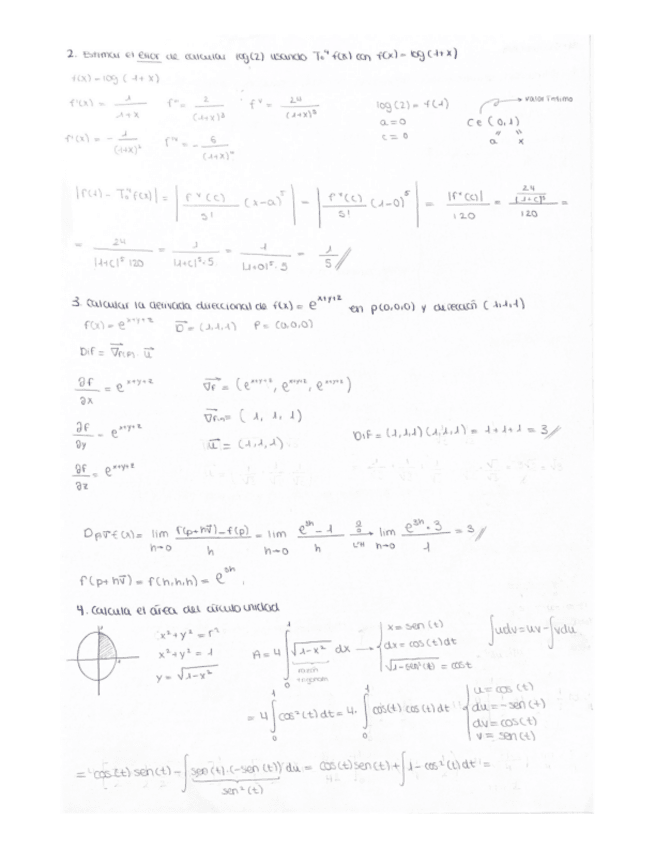 2. Estimar el error de calcular log(2) usando T₀⁴ f(x) con f(x) = log(1+x)
f(x) = log(1+x)
f'(x) = 1/(1+x) f''' = 2/(1+x)³ fⱽ = 24/(1+x)⁵ log(2) = f(1) → valor ínfimo
a = 0 c ∈ (0,1)
f''(x) = - 1/(1+x)² fᴵⱽ = - 6/(1+x)⁴ c = 0 a x
|f(x) - T₀⁴ f(x)| = |fⱽ(c)/5! (x-a)⁵| = |fⱽ(c)/5! (1-0)⁵| = |fⱽ(c)|/120 = 24/(1+c)⁵/120 =
= 24/(1+c)⁵ 120 = 1/(1+c)⁵·5 = 1/(1+0)⁵·5 = 1/5 //
3. Calcular la derivada direccional de f(x) = e^(x+y+z) en p(0,0,0) y dirección (1,1,1)
f(x) = e^(x+y+z) D = (1,1,1) P = (0,0,0)
Dif = ∇f(p) · u
∂f/∂x = e^(x+y+z) ∇f = (e^(x+y+z), e^(x+y+z), e^(x+y+z))
∇f(p) = (1, 1, 1)
∂f/∂y = e^(x+y+z) u = (1,1,1) Dif = (1,1,1)(1,1,1) = 1+1+1 = 3 //
∂f/∂z = e^(x+y+z)
D_p v f(x) = lim h→0 f(p+hv) - f(p)/h = lim h→0 e^(3h) - 1/h 0/0 L'H lim h→0 e^(3h) · 3/1 = 3 //
f(p+hv) = f(h,h,h) = e^(3h).
4. Calcula el área del círculo unidad
x² + y² = r²
x² + y² = 1
y = √(1-x²)
A = 4 ∫₀¹ √(1-x²) dx → x = sen(t)
dx = cos(t) dt
√(1-sen²(t)) = cos t
∫udv = uv - ∫vdu
= 4 ∫₀¹ cos²(t) dt = 4 · ∫₀¹ cos(t) cos(t) dt u = cos(t)
du = -sen(t)
dv = cos(t)
v = sen(t)
= cos(t) sen(t) - ∫ sen(t) · (-sen(t)) du = cos(t) sen(t) + ∫ 1 - cos²(t) dt =
sen²(t)